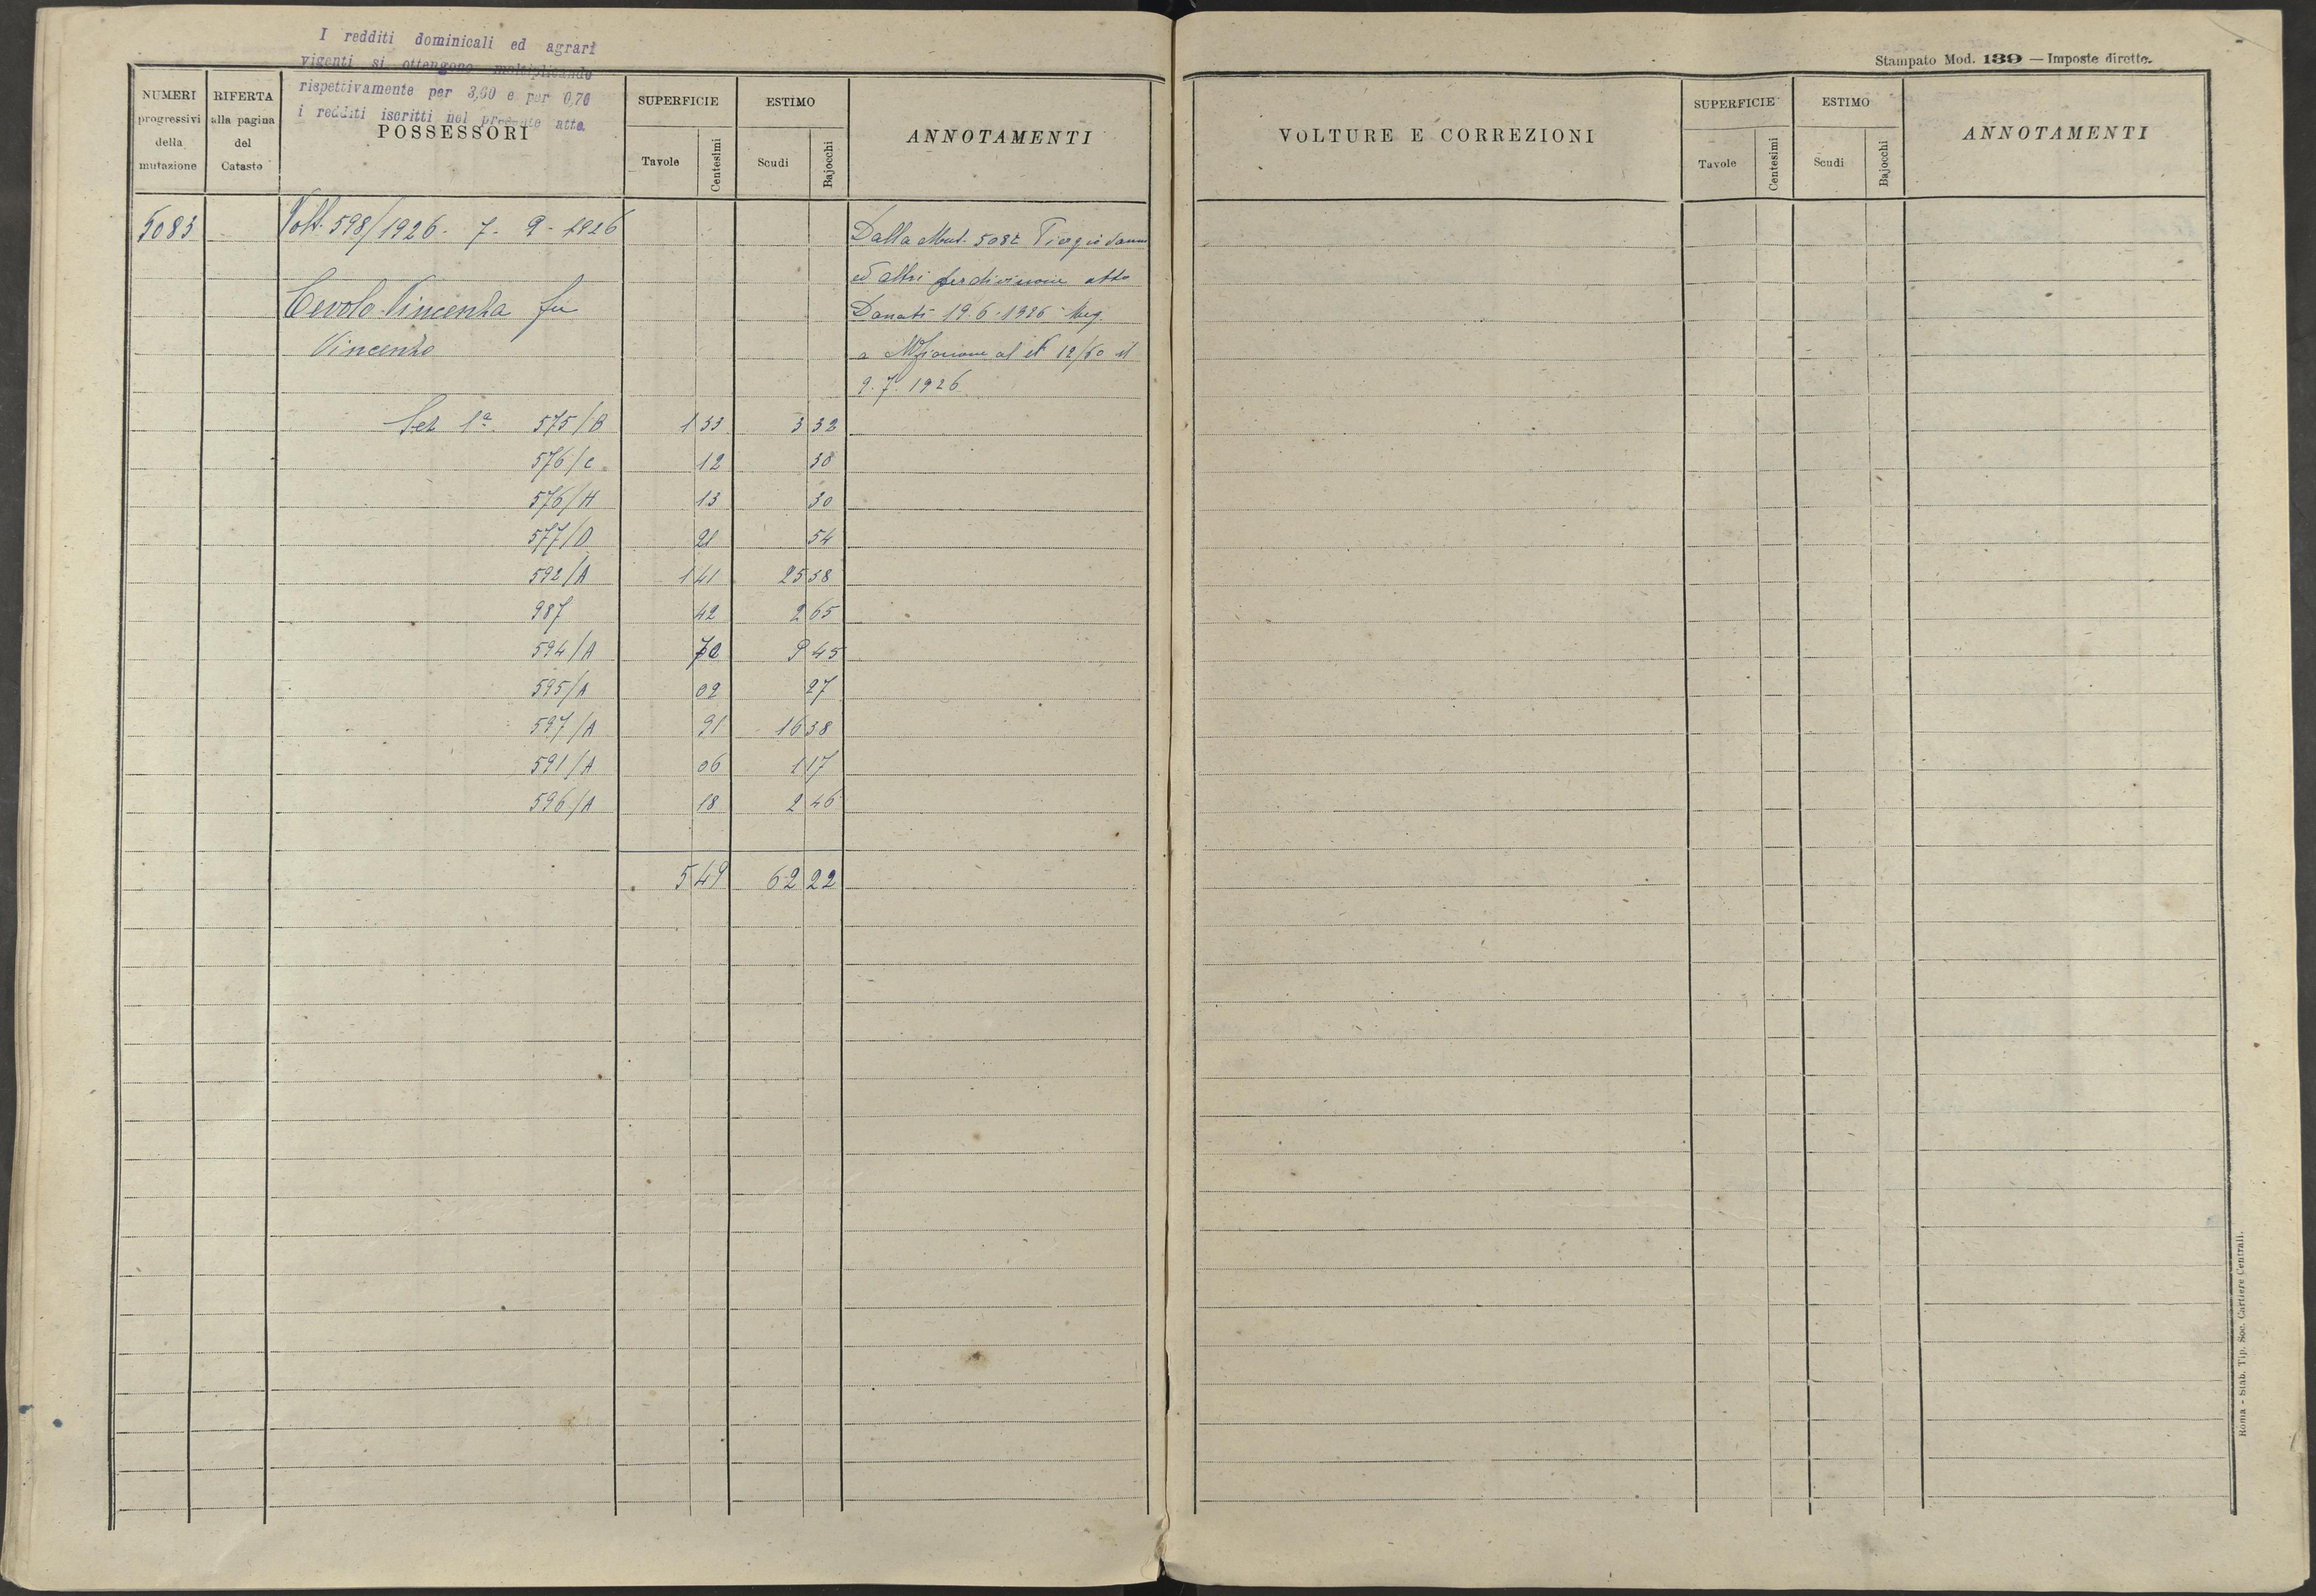 I redditi dominicali ed agrari
vigenti si ottengono moltiplicando
rispettivamente per 3,60 e per 0,70
i redditi iscritti nel presente atto.
NUMERI progressivi della mutazione
RIFERTA alla pagina del Catasto
POSSESSORI
SUPERFICIE
Tavole Centesimi
ESTIMO
Scudi Bajocchi
ANNOTAMENTI
5083 Volt. 598/1926. 7. 9. 1926
Cevolo Vincenza fu
Vincenzo
Dalla Mut. 5082
ed altri per divisione atto
Donati 19.6.1926 Reg.
a al N 12/60 il
9.7.1926
Sez 1ª 575/B 1 33 3 32
576/C 12 30
576/H 13 30
577/D 21 54
592/A 1 41 25 38
987 42 2 65
594/A 70 9 45
595/A 02 27
597/A 91 16 38
591/A 06 1 17
596/A 18 2 46
5 49 62 22
Stampato Mod. 139 — Imposte dirette.
VOLTURE E CORREZIONI
SUPERFICIE
Tavole Centesimi
ESTIMO
Scudi Bajocchi
ANNOTAMENTI
Roma - Stab. Tip. Soc. Cartiere Centrali.